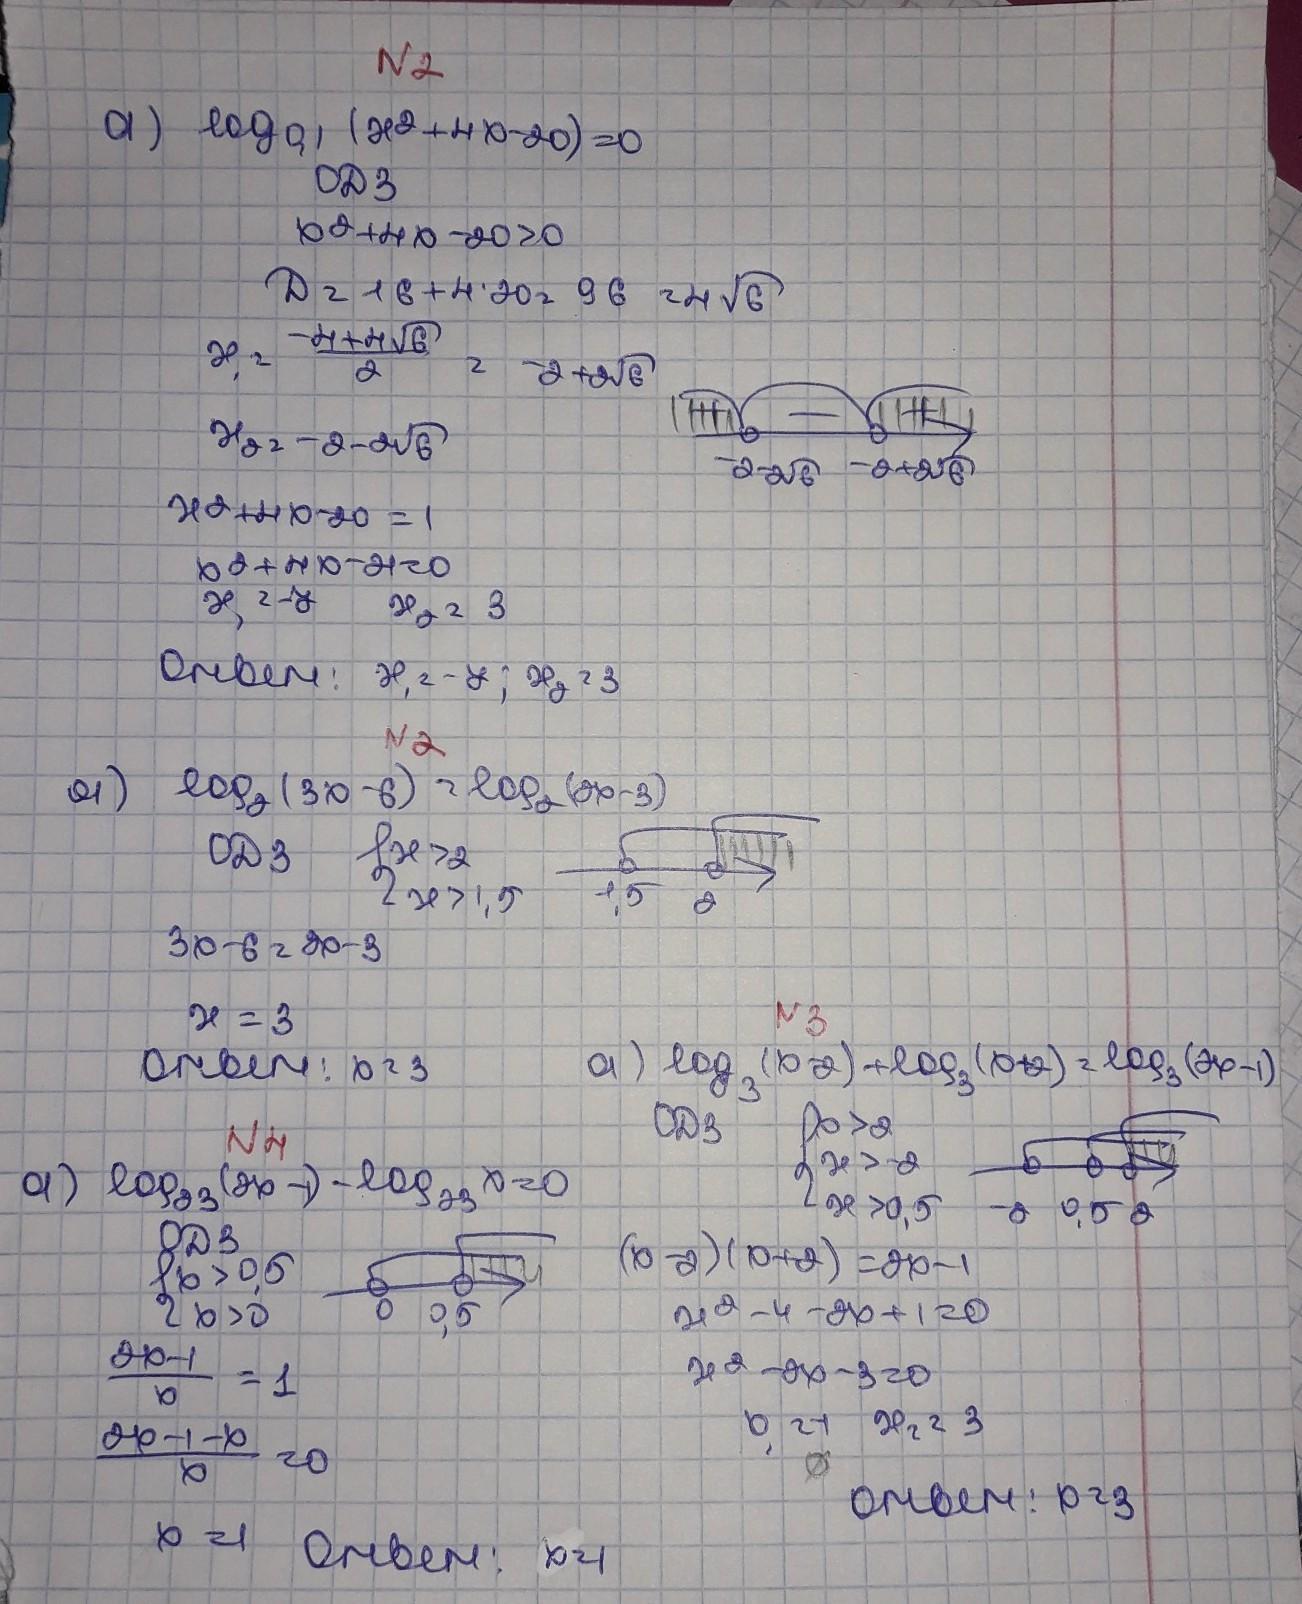 N2
а) log₀,₁ (x²+4x-20)=0
ОДЗ
x²+4x-20>0
D=16+4·20=96 =4√6
x₁= (-4+4√6)/2 = -2+2√6
x₂=-2-2√6
-
+
-2-2√6 -2+2√6
x²+4x-20=1
x²+4x-21=0
x₁=-7 x₂=3
Ответ: x₁=-7; x₂=3
N2
а) log₂(3x-6)=log₂(2x-3)
ОДЗ {x>2
{x>1,5
1,5 2
3x-6=2x-3
x=3
Ответ: x=3
N3
а) log₃(x-2)+log₃(x+2)=log₃(2x-1)
ОДЗ {x>2
{x>-2
{x>0,5
-2 0,5 2
(x-2)(x+2)=2x-1
x²-4-2x+1=0
x²-2x-3=0
x₁=-1 x₂=3
∅
Ответ: x=3
N4
а) log₂₃(2x-1)-log₂₃x=0
ОДЗ
{x>0,5
{x>0
0 0,5
(2x-1)/x =1
(2x-1-x)/x =0
x=1 Ответ: x=1